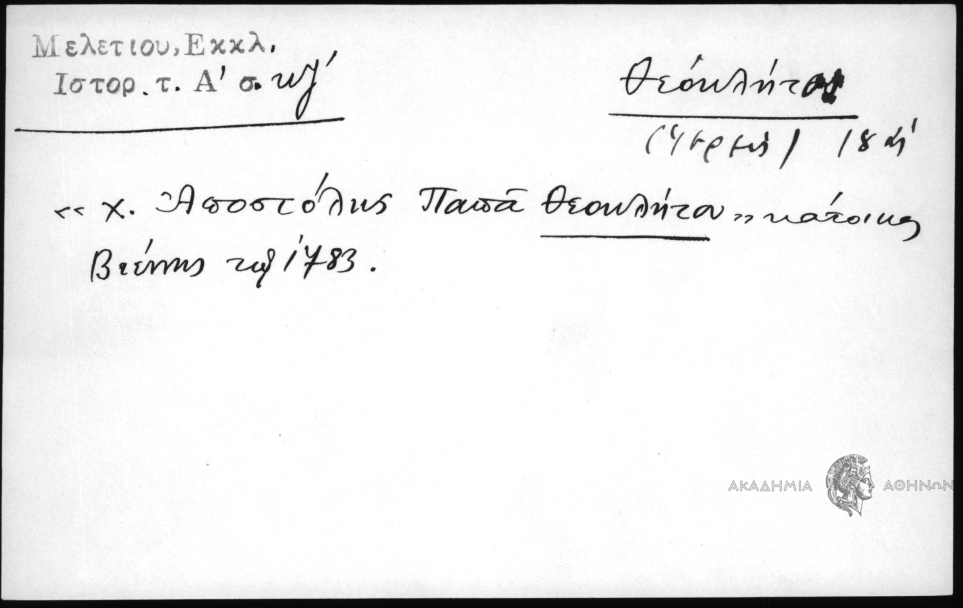 Μελετιου, Εκκλ.
Ιστορ. τ. Α' σ. κζ'
Θεόκλητος
18 αἰ
« χ. Ἀποστόλης Παπᾶ Θεοκλήτου » κάτοικος
Βιέννης τῷ 1783.
ΑΚΑΔΗΜΙΑ ΑΘΗΝΩΝ